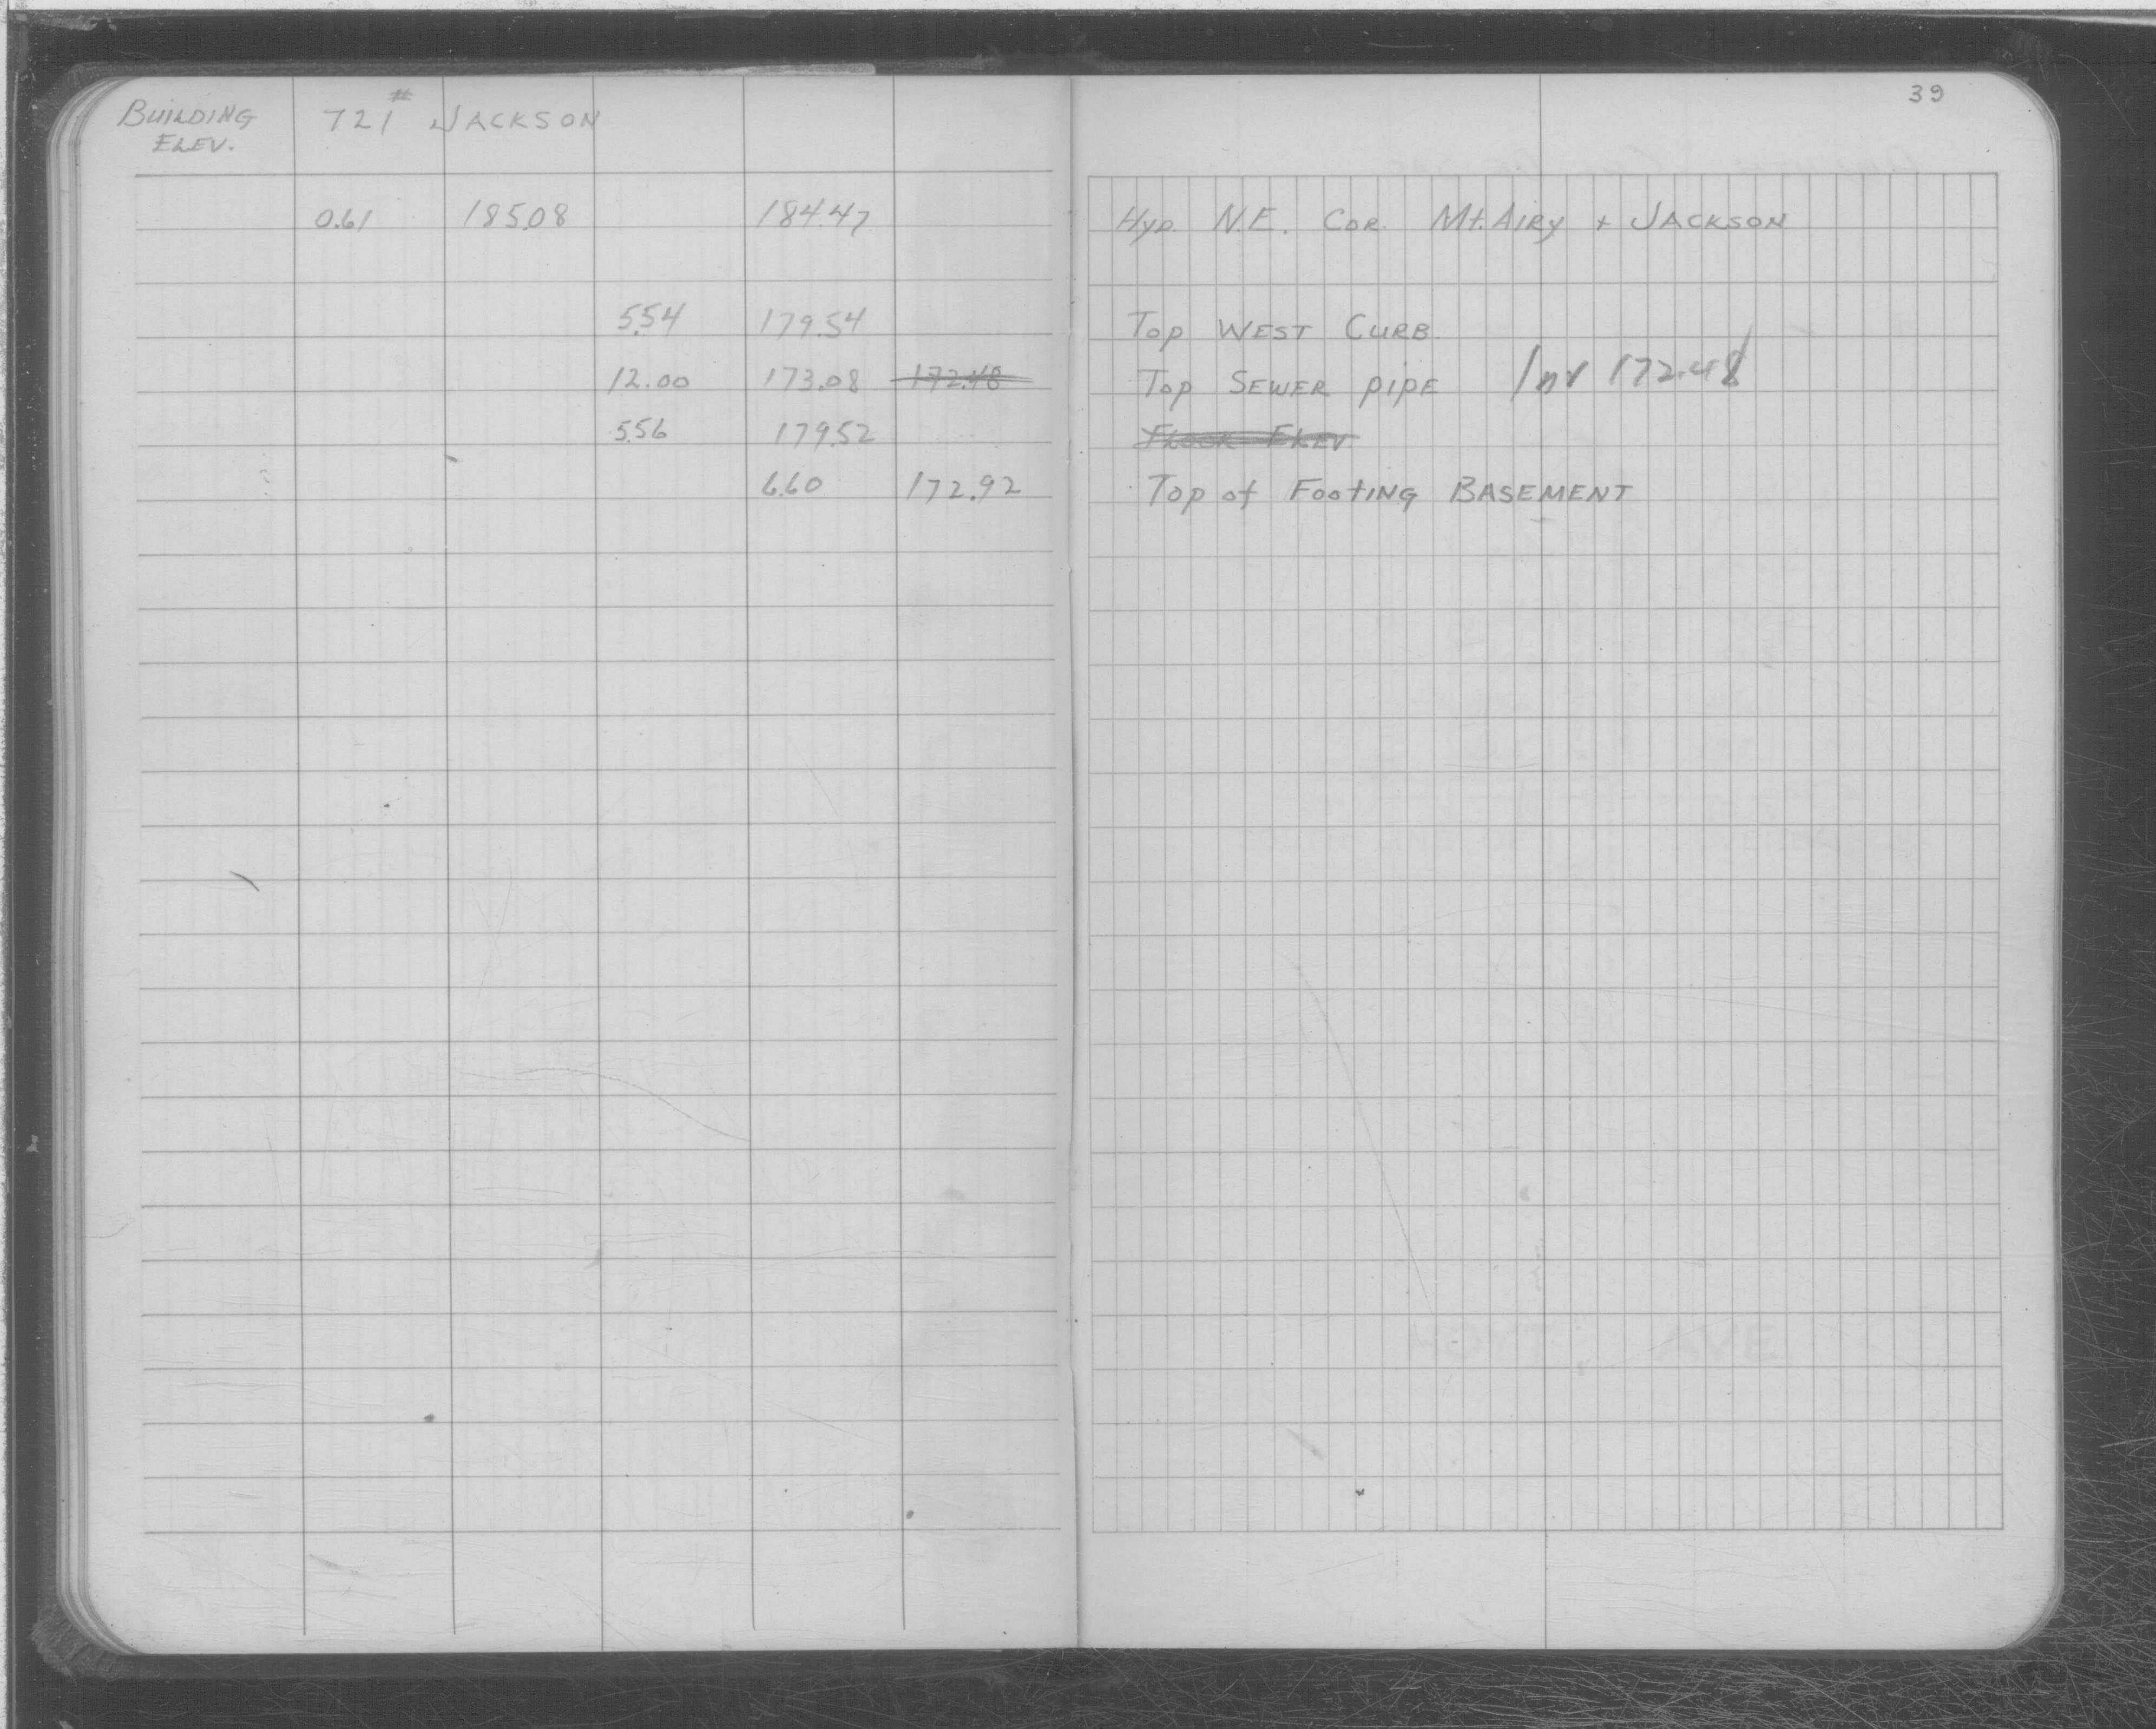 39
BUILDING ELEV. 721# JACKSON
0.61 185.08 184.47 Hyd. N.E. COR. Mt. AIRY + JACKSON
5.54 179.54 TOP WEST CURB
12.00 173.08 172.48 TOP SEWER PIPE Inv 172.48
5.56 179.52 FLOOR ELEV.
6.60 172.92 TOP of FOOTING BASEMENT